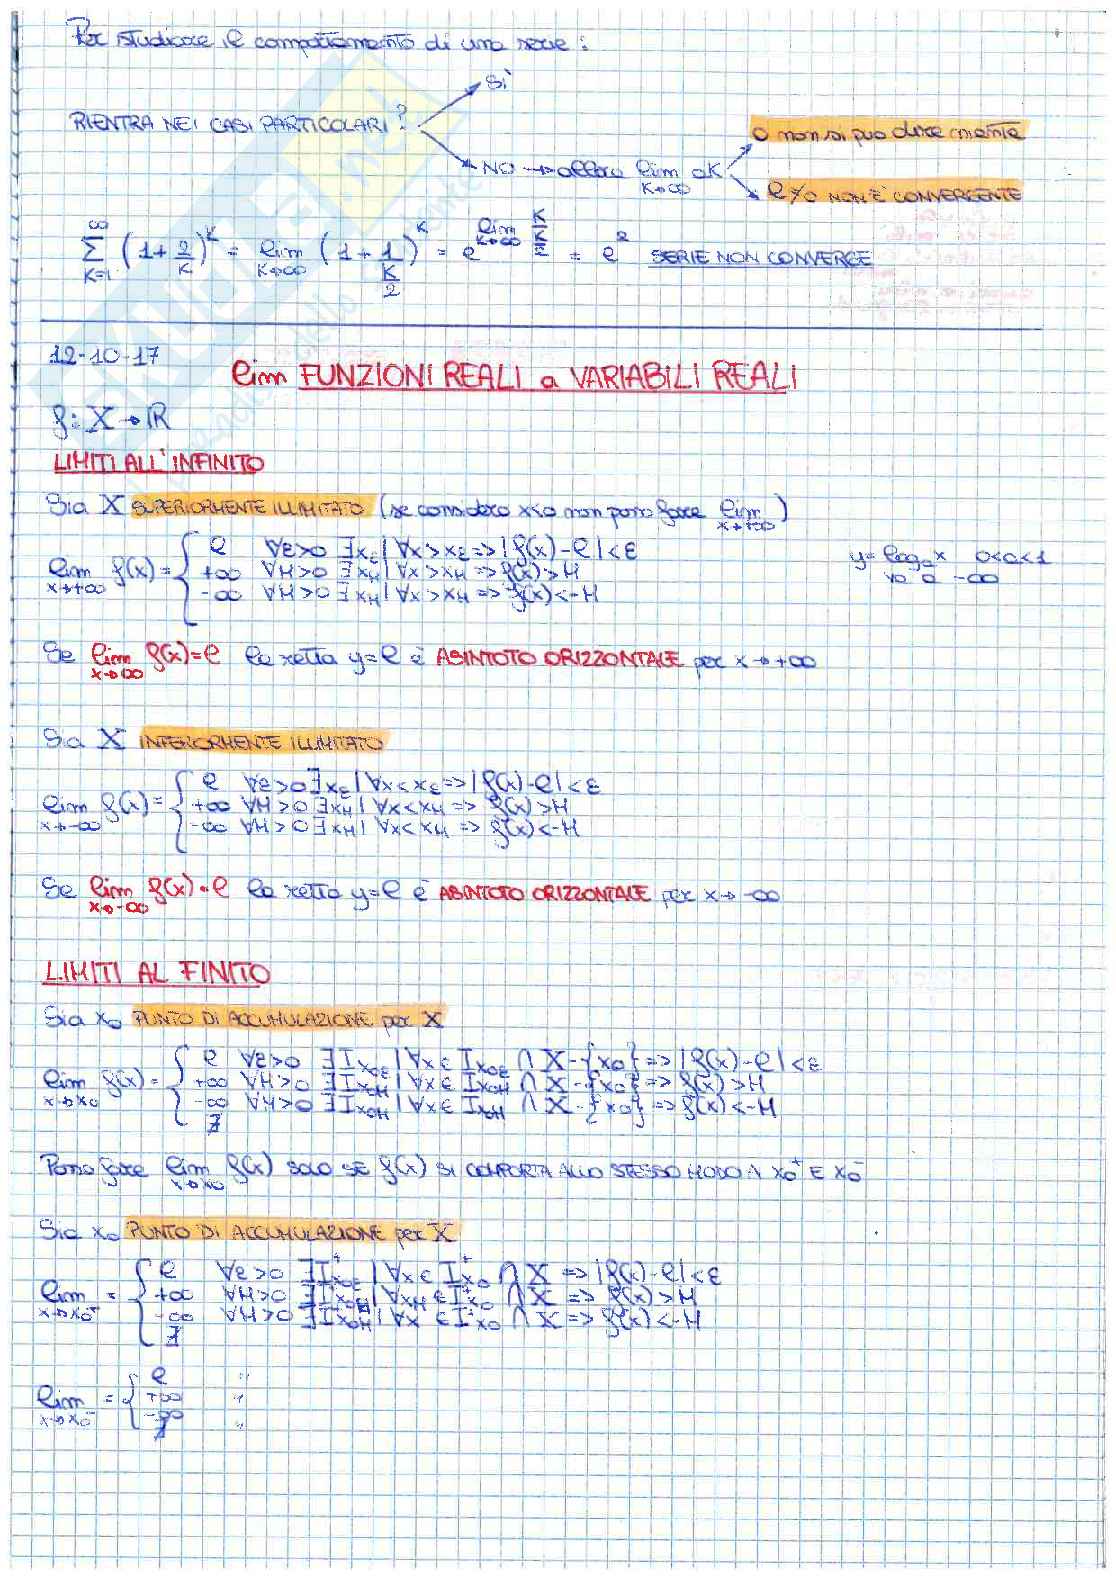 Per studiare il comportamento di una serie:
SÌ
RIENTRA NEI CASI PARTICOLARI?
0 non si può dire niente
NO → allora lim aK
K→∞
l≠0 NON È CONVERGENTE
∞ ∑ K=1 (1+2/K)^K = lim K→∞ (1+1/(K/2))^K = e^(lim K→∞ K/(K/2)) = e^2 SERIE NON CONVERGE
12-10-17
lim FUNZIONI REALI a VARIABILI REALI
f: X→ℝ
LIMITI ALL'INFINITO
Sia X SUPERIORMENTE ILLIMITATO (se considero x<0 non posso fare lim x→+∞)
l ∀ε>0 ∃xε | ∀x>xε => |f(x)-l|<ε
y=logₐx 0<a<1
lim x→+∞ f(x)= { +∞ ∀H>0 ∃xH | ∀x>xH => f(x)>H
va a -∞
-∞ ∀H>0 ∃xH | ∀x>xH => f(x)<-H
Se lim x→∞ f(x)=l la retta y=l è ASINTOTO ORIZZONTALE per x→+∞
Sia X INFERIORMENTE ILLIMITATO
l ∀ε>0 ∃xε | ∀x<xε => |f(x)-l|<ε
lim x→-∞ f(x)= { +∞ ∀H>0 ∃xH | ∀x<xH => f(x)>H
-∞ ∀H>0 ∃xH | ∀x<xH => f(x)<-H
Se lim x→-∞ f(x)=l la retta y=l è ASINTOTO ORIZZONTALE per x→-∞
LIMITI AL FINITO
Sia x0 PUNTO DI ACCUMULAZIONE per X
l ∀ε>0 ∃Ix0ε | ∀x∈ Ix0ε ∩ X-{x0} => |f(x)-l|<ε
lim x→x0 f(x)= { +∞ ∀H>0 ∃Ix0H | ∀x∈ Ix0H ∩ X-{x0} => f(x)>H
-∞ ∀H>0 ∃Ix0H | ∀x∈ Ix0H ∩ X-{x0} => f(x)<-H
∄
Posso fare lim x→x0 f(x) SOLO SE f(x) SI COMPORTA ALLO STESSO MODO A x0⁺ E x0⁻
Sia x0 PUNTO DI ACCUMULAZIONE per X
l ∀ε>0 ∃I⁺x0ε | ∀x∈ I⁺x0 ∩ X => |f(x)-l|<ε
lim x→x0⁺ = { +∞ ∀H>0 ∃I⁺x0H | ∀xH ∈ I⁺x0 ∩ X => f(x)>H
-∞ ∀H>0 ∃I⁺x0H | ∀x ∈ I⁺x0 ∩ X => f(x)<-H
∄
l "
lim x→x0⁻ = { +∞ "
-∞ "
∄